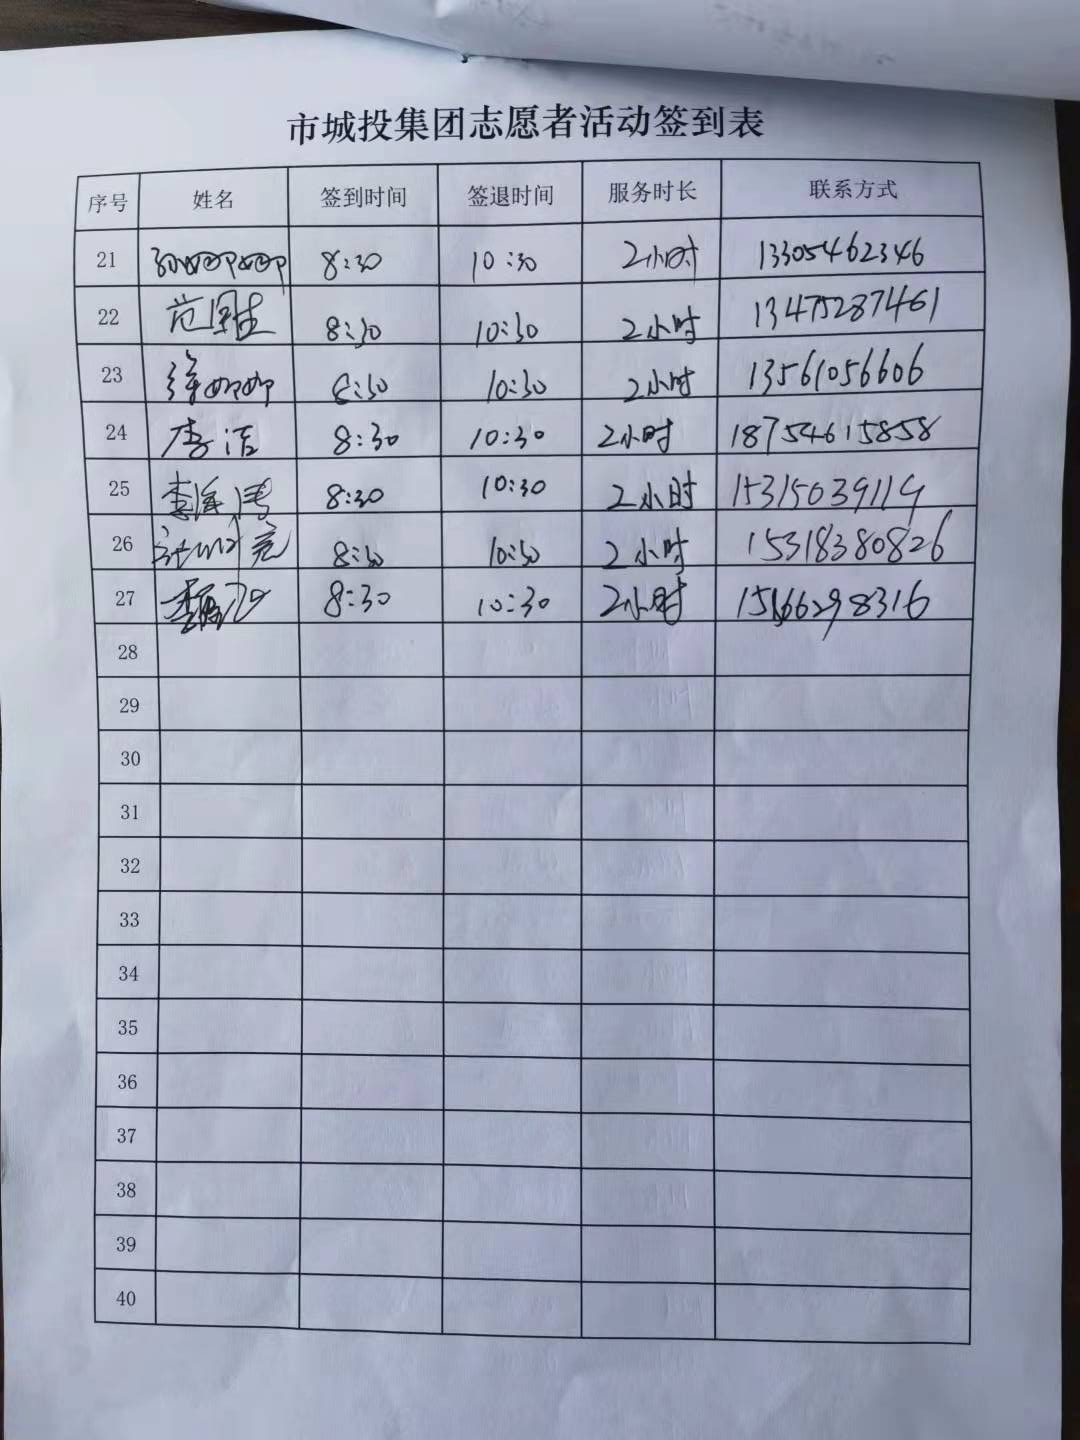 市城投集团志愿者活动签到表
序号 姓名 签到时间 签退时间 服务时长 联系方式
21 孙娜娜 8:30 10:30 2小时 13305462346
22 范国生 8:30 10:30 2小时 13475287461
23 徐娜娜 8:30 10:30 2小时 13561056606
24 李洁 8:30 10:30 2小时 18754615858
25 李海涛 8:30 10:30 2小时 15315039119
26 8:30 10:30 2小时 15318380826
27 8:30 10:30 2小时 15166298316
28
29
30
31
32
33
34
35
36
37
38
39
40